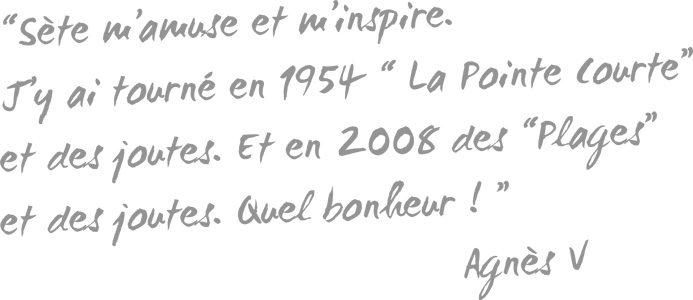 “Sète m'amuse et m'inspire.
J'y ai tourné en 1954 “ La Pointe Courte”
et des joutes. Et en 2008 des “Plages”
et des joutes. Quel bonheur ! ”
Agnès V